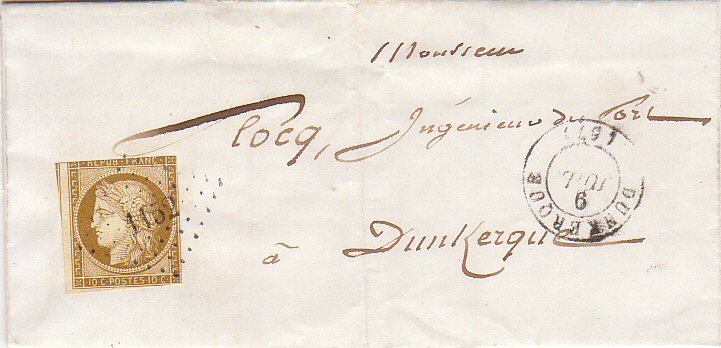 Monsieur
Plocq, Ingénieur du Port
à Dunkerque
REPUB. FRANC.
10 C. POSTES 10 C.
1152
DUNKERQUE
6
JUIL.
(57)